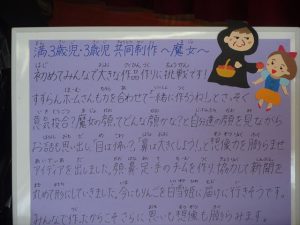 満3歳児・3歳児 共同制作 〜魔女〜
初めてみんなで大きな作品作りに挑戦です!
すずらんホームさんも力を合わせて「一緒に作ろうね!」とさっそく
意気投合?魔女の顔ってどんな顔かな?と自分達の顔を見ながら
お話も思い出し「目は怖い?」「鼻は大きくしよう!」と想像力を膨らませ
アイディアを出しました。顔・鼻・足・手のチームを作り、協力して新聞を
丸めて形にしていきました。今にもりんごを白雪姫に届けに行きそうです。
みんなで作ったからこそさらに思いも想像も膨らみます。